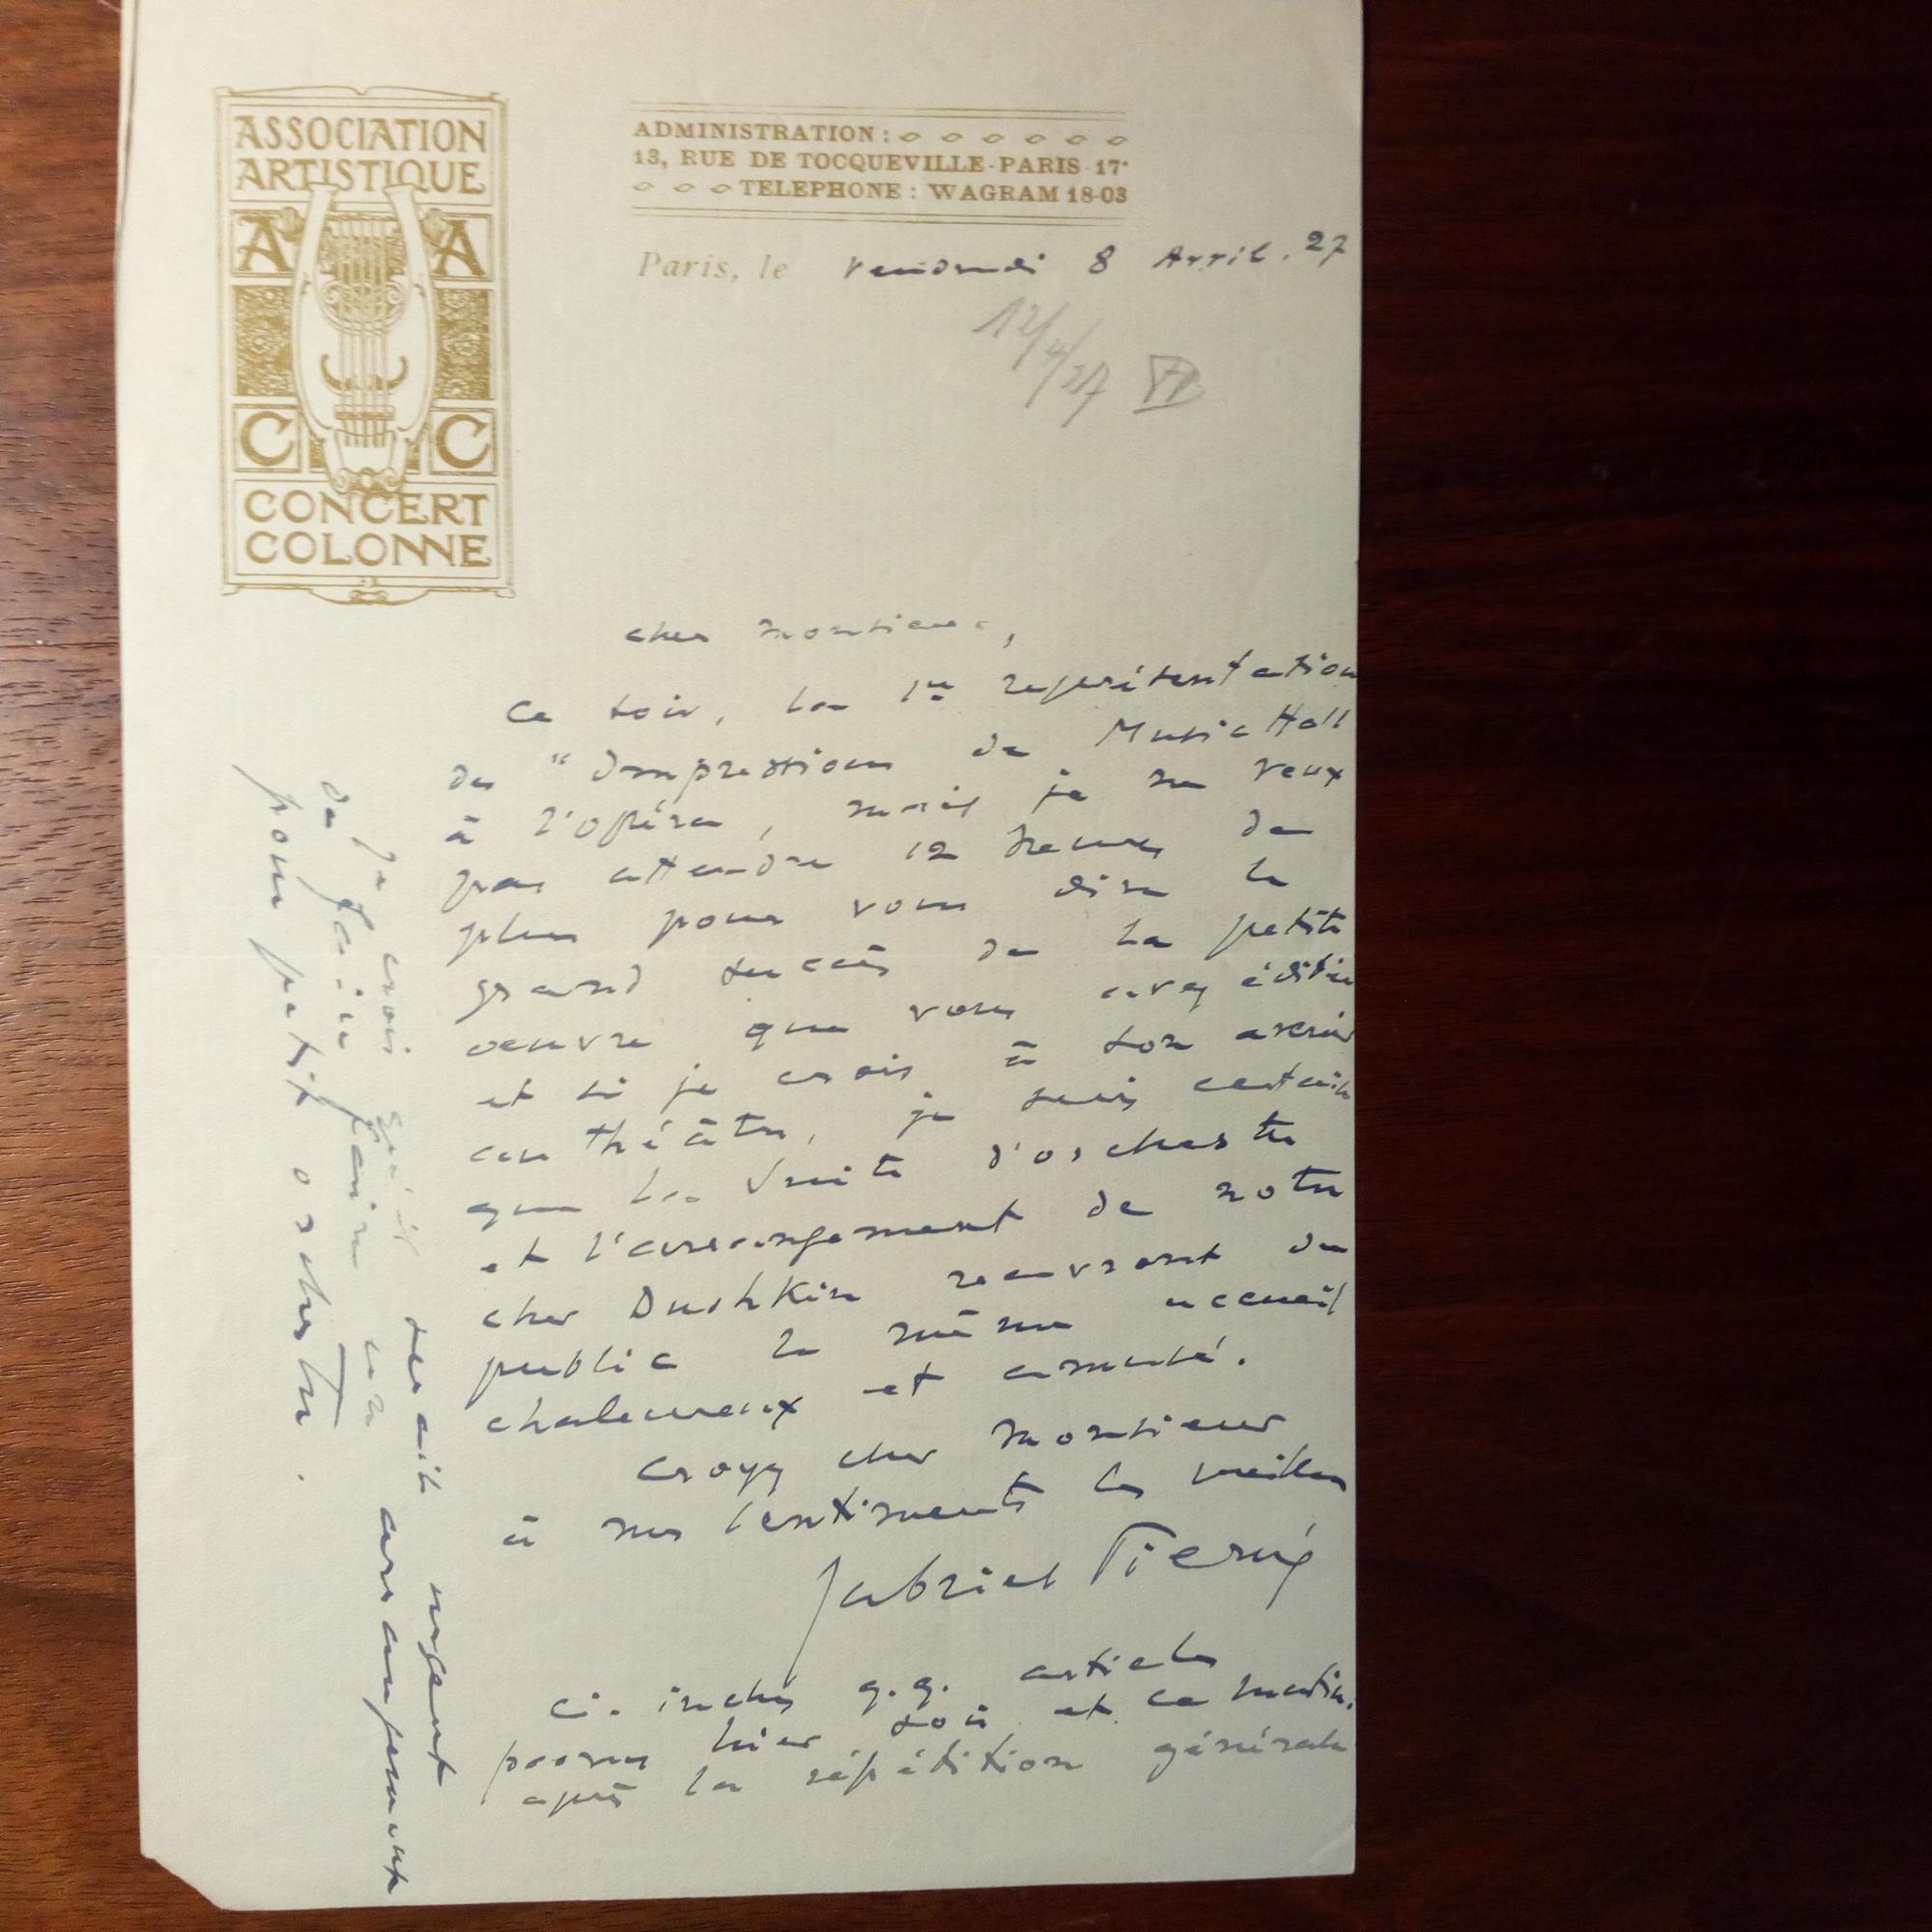 ASSOCIATION
ARTISTIQUE
A A
C C
CONCERT
COLONNE
ADMINISTRATION :
13, RUE DE TOCQUEVILLE-PARIS-17e
TELEPHONE : WAGRAM 18-03
Paris, le Vendredi 8 Avril . 27
12/4/27
cher Monsieur,
Ce soir, la 1re représentation
des "Impressions de Music Hall
à l'opéra, mais je ne veux
pas attendre 12 heures de
plus pour vous dire le
grand succès de la petite
oeuvre que vous avez éditée
et si je crois à son avenir
au théâtre, je suis certain
que la Suite d'orchestre
et l'arrangement de notre
cher Dushkin recevront du
public le même accueil
chaleureux et amusé.
Croyez cher Monsieur
à mes sentiments les meilleurs
Gabriel Pierné
Ci-inclus q.q. articles
parus hier soir et ce matin.
après la répétition générale
Je crois qu'il serait urgent
de faire faire un arrangement
pour petit orchestre.